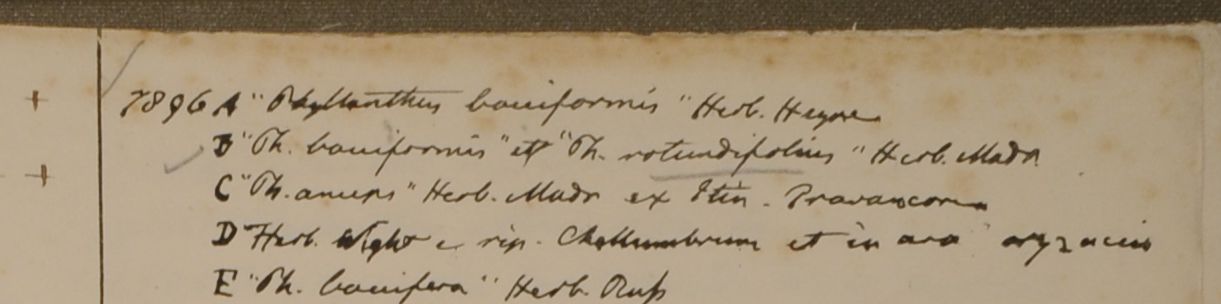 7896 A "Phyllanthus bacciformis" Herb. Heyne
B "Ph. bacciformis" et "Ph. rotundifolius" Herb. Madr
C "Ph. anceps" Herb. Madr ex Itin. Travancore
D Herb. Wight e rip. et in
E "Ph. baccifera" Herb. Russ